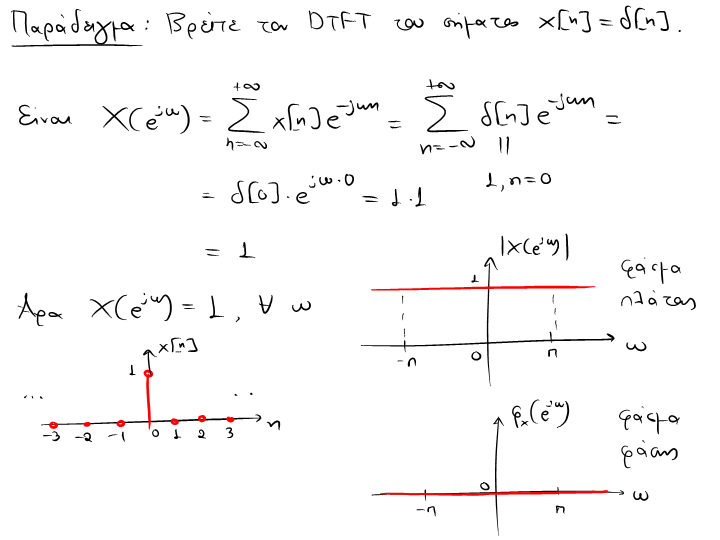 Παράδειγμα: Βρείτε τον DTFT του σήματος x[n] = δ[n].
Είναι X(e^{jω}) = \sum_{n=-∞}^{+∞} x[n] e^{-jωn} = \sum_{n=-∞}^{+∞} δ[n] e^{-jωn} =
= δ[0] · e^{jω·0} = 1 · 1
||
1, n=0
= 1
Άρα X(e^{jω}) = 1, ∀ ω
|X(e^{jω})|
1
-π 0 π ω
φάσμα
πλάτους
x[n]
1
... ..
-3 -2 -1 0 1 2 3 n
φ_x(e^{jω})
0
-π π ω
φάσμα
φάσης